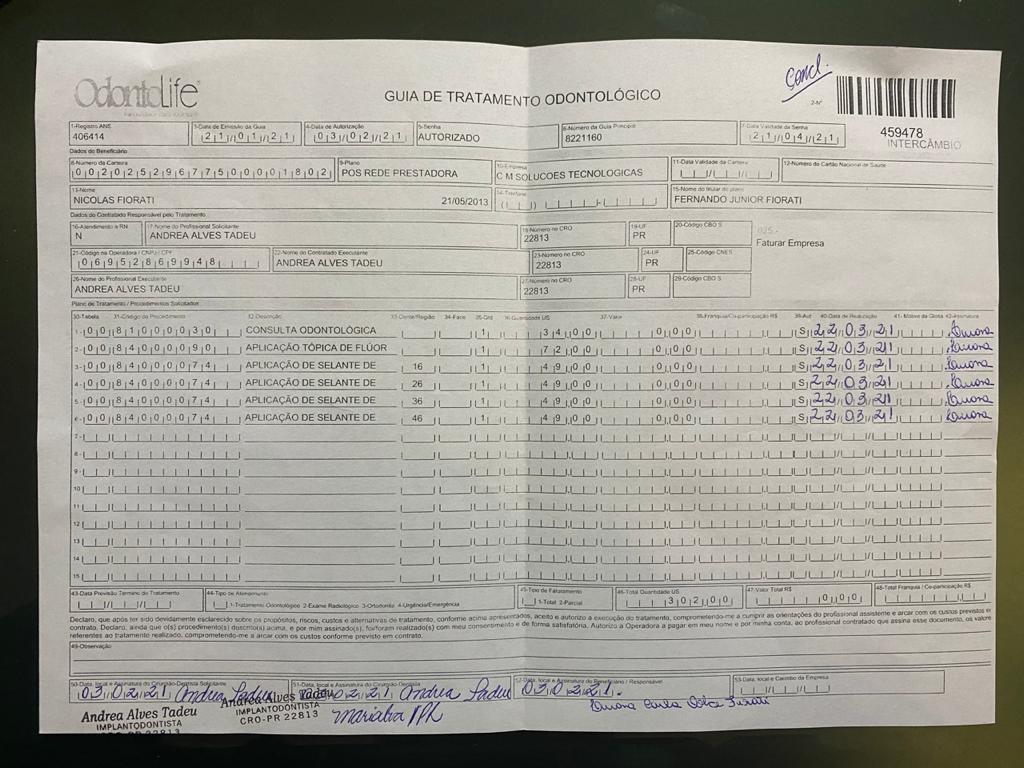 Concl.
OdontoLife
GUIA DE TRATAMENTO ODONTOLÓGICO
2-Nº
459478
INTERCÂMBIO
1-Registro ANS 3-Data de Emissão da Guia 4-Data de Autorização 5-Senha 6-Número da Guia Principal 7-Data Validade da Senha
406414 21/01/21 03/02/21 AUTORIZADO 8221160 21/04/21
Dados do Beneficiário
8-Número da Carteira 9-Plano 10-Empresa 11-Data Validade da Carteira 12-Número do Cartão Nacional de Saúde
00202529677500001802 POS REDE PRESTADORA C M SOLUCOES TECNOLOGICAS
13-Nome 14-Telefone 15-Nome do titular do plano
NICOLAS FIORATI 21/05/2013 FERNANDO JUNIOR FIORATI
Dados do Contratado Responsável pelo Tratamento
16-Atendimento a RN 17-Nome do Profissional Solicitante 18-Número no CRO 19-UF 20-Código CBO S 025-
N ANDREA ALVES TADEU 22813 PR
Faturar Empresa
21-Código na Operadora / CNPJ / CPF 22-Nome do Contratado Executante 23-Número no CRO 24-UF 25-Código CNES
06952869948 ANDREA ALVES TADEU 22813 PR
26-Nome do Profissional Executante 27-Número no CRO 28-UF 29-Código CBO S
ANDREA ALVES TADEU 22813 PR
Plano de Tratamento / Procedimentos Solicitados
30-Tabela 31-Código do Procedimento 32-Descrição 33-Dente/Região 34-Face 35-Qtd 36-Quantidade US 37-Valor 38-Franquia/Co-participação R$ 39-Aut 40-Data de Realização 41-Motivo da Glosa 42-Assinatura
1- 00 81000030 CONSULTA ODONTOLÓGICA 1 34 00 0 00 S 22/03/21
2- 00 84000090 APLICAÇÃO TÓPICA DE FLÚOR 1 72 00 0 00 S 22/03/21
3- 00 84000074 APLICAÇÃO DE SELANTE DE 16 1 49 00 0 00 S 22/03/21
4- 00 84000074 APLICAÇÃO DE SELANTE DE 26 1 49 00 0 00 S 22/03/21
5- 00 84000074 APLICAÇÃO DE SELANTE DE 36 1 49 00 0 00 S 22/03/21
6- 00 84000074 APLICAÇÃO DE SELANTE DE 46 1 49 00 0 00 S 22/03/21
7-
8-
9-
10
11
12
13
14
15
43-Data Previsão Término do Tratamento 44-Tipo de Atendimento 45-Tipo de Faturamento 46-Total Quantidade US 47-Valor Total R$ 48-Total Franquia / Co-participação R$
1-Tratamento Odontológico 2-Exame Radiológico 3-Ortodontia 4-Urgência/Emergência 1-Total 2-Parcial 302 00 0 00
Declaro, que após ter sido devidamente esclarecido sobre os propósitos, riscos, custos e alternativas de tratamento, conforme acima apresentados, aceito e autorizo a execução do tratamento, comprometendo-me a cumprir as orientações do profissional assistente e arcar com os custos previstos em
contrato. Declaro, ainda que o(s) procedimento(s) descrito(s) acima, e por mim assinado(s), foi/foram realizado(s) com meu consentimento e de forma satisfatória. Autorizo a Operadora a pagar em meu nome e por minha conta, ao profissional contratado que assina esse documento, os valores
referentes ao tratamento realizado, comprometendo-me a arcar com os custos conforme previsto em contrato.
49-Observação
50-Data, local e Assinatura do Cirurgião-Dentista Solicitante 51-Data, local e Assinatura do Cirurgião-Dentista 52-Data, local e Assinatura do Beneficiário / Responsável 53-Data, local e Carimbo da Empresa
03 02 21 Andrea Tadeu 03 02 21 Andrea Tadeu 03 02 21.
Andrea Alves Tadeu
IMPLANTODONTISTA
CRO-PR 22813
Andrea Alves Tadeu
IMPLANTODONTISTA
CRO-PR 22813
Marialva PR